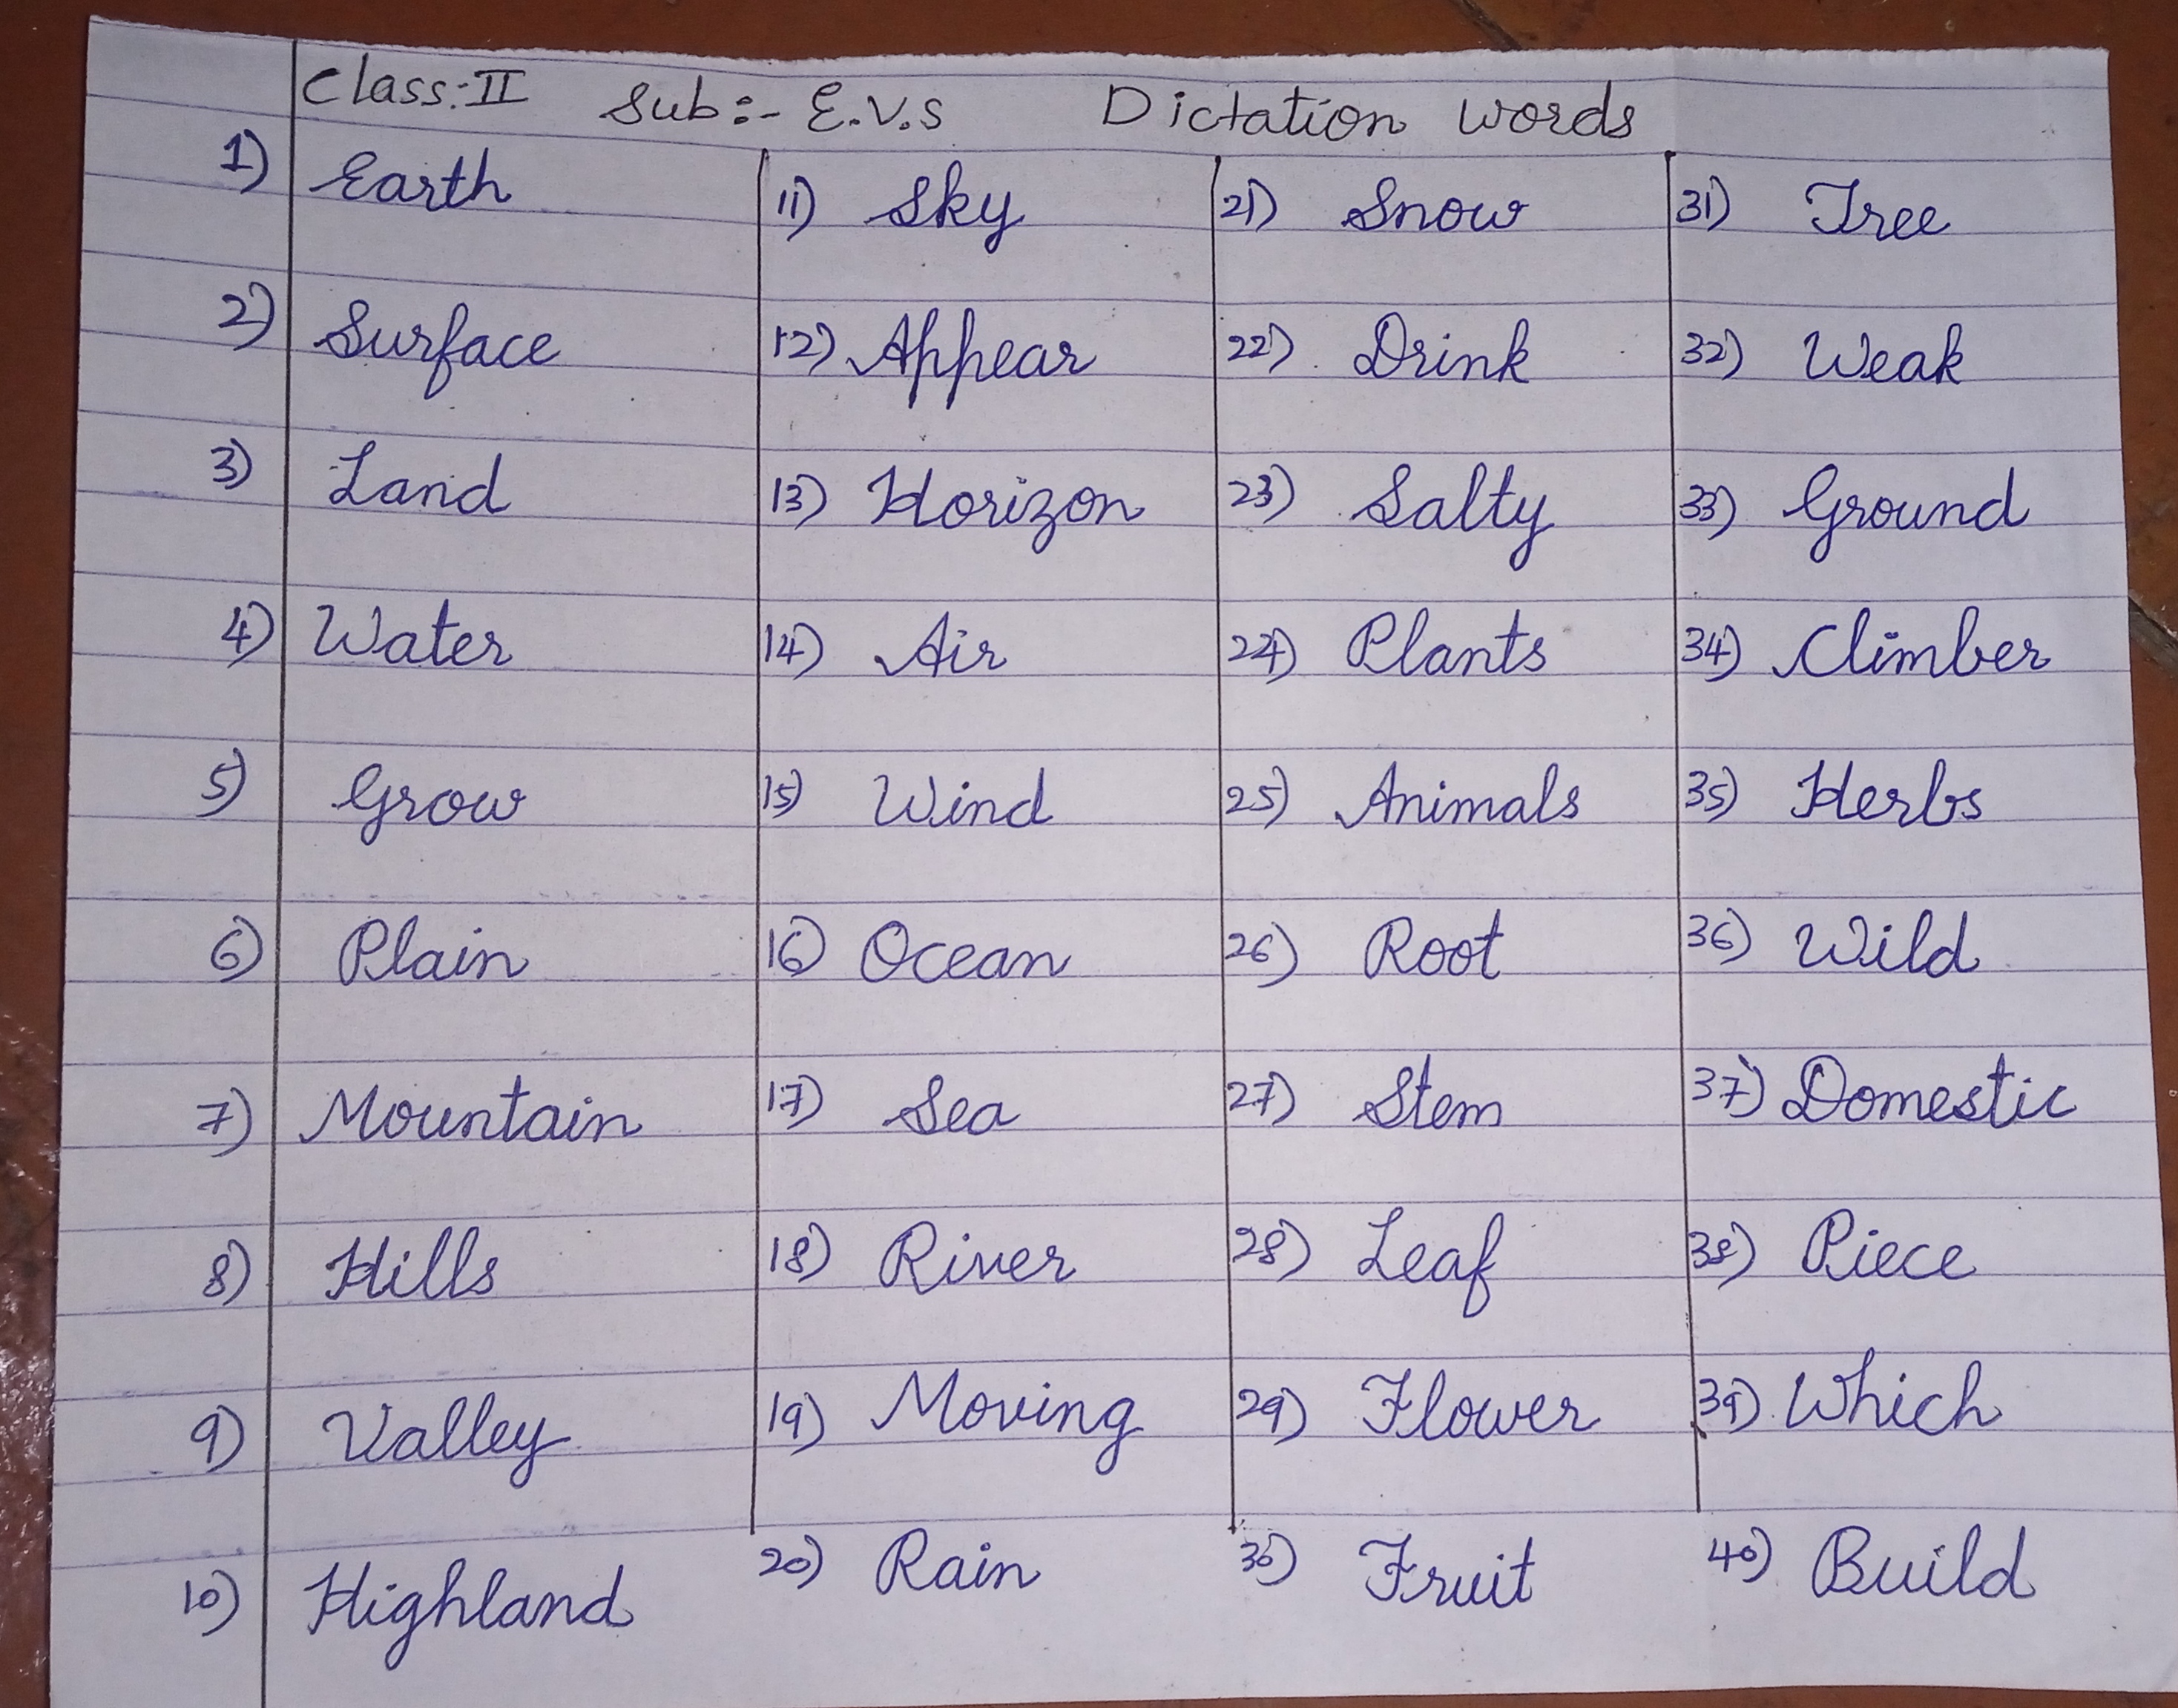 Class:- II Sub:- E.V.S Dictation Words
1) Earth 11) Sky 21) Snow 31) Tree
2) Surface 12) Appear 22) Drink 32) Weak
3) Land 13) Horizon 23) Salty 33) Ground
4) Water 14) Air 24) Plants 34) Climber
5) Grow 15) Wind 25) Animals 35) Herbs
6) Plain 16) Ocean 26) Root 36) Wild
7) Mountain 17) Sea 27) Stem 37) Domestic
8) Hills 18) River 28) Leaf 38) Piece
9) Valley 19) Moving 29) Flower 39) Which
10) Highland 20) Rain 30) Fruit 40) Build